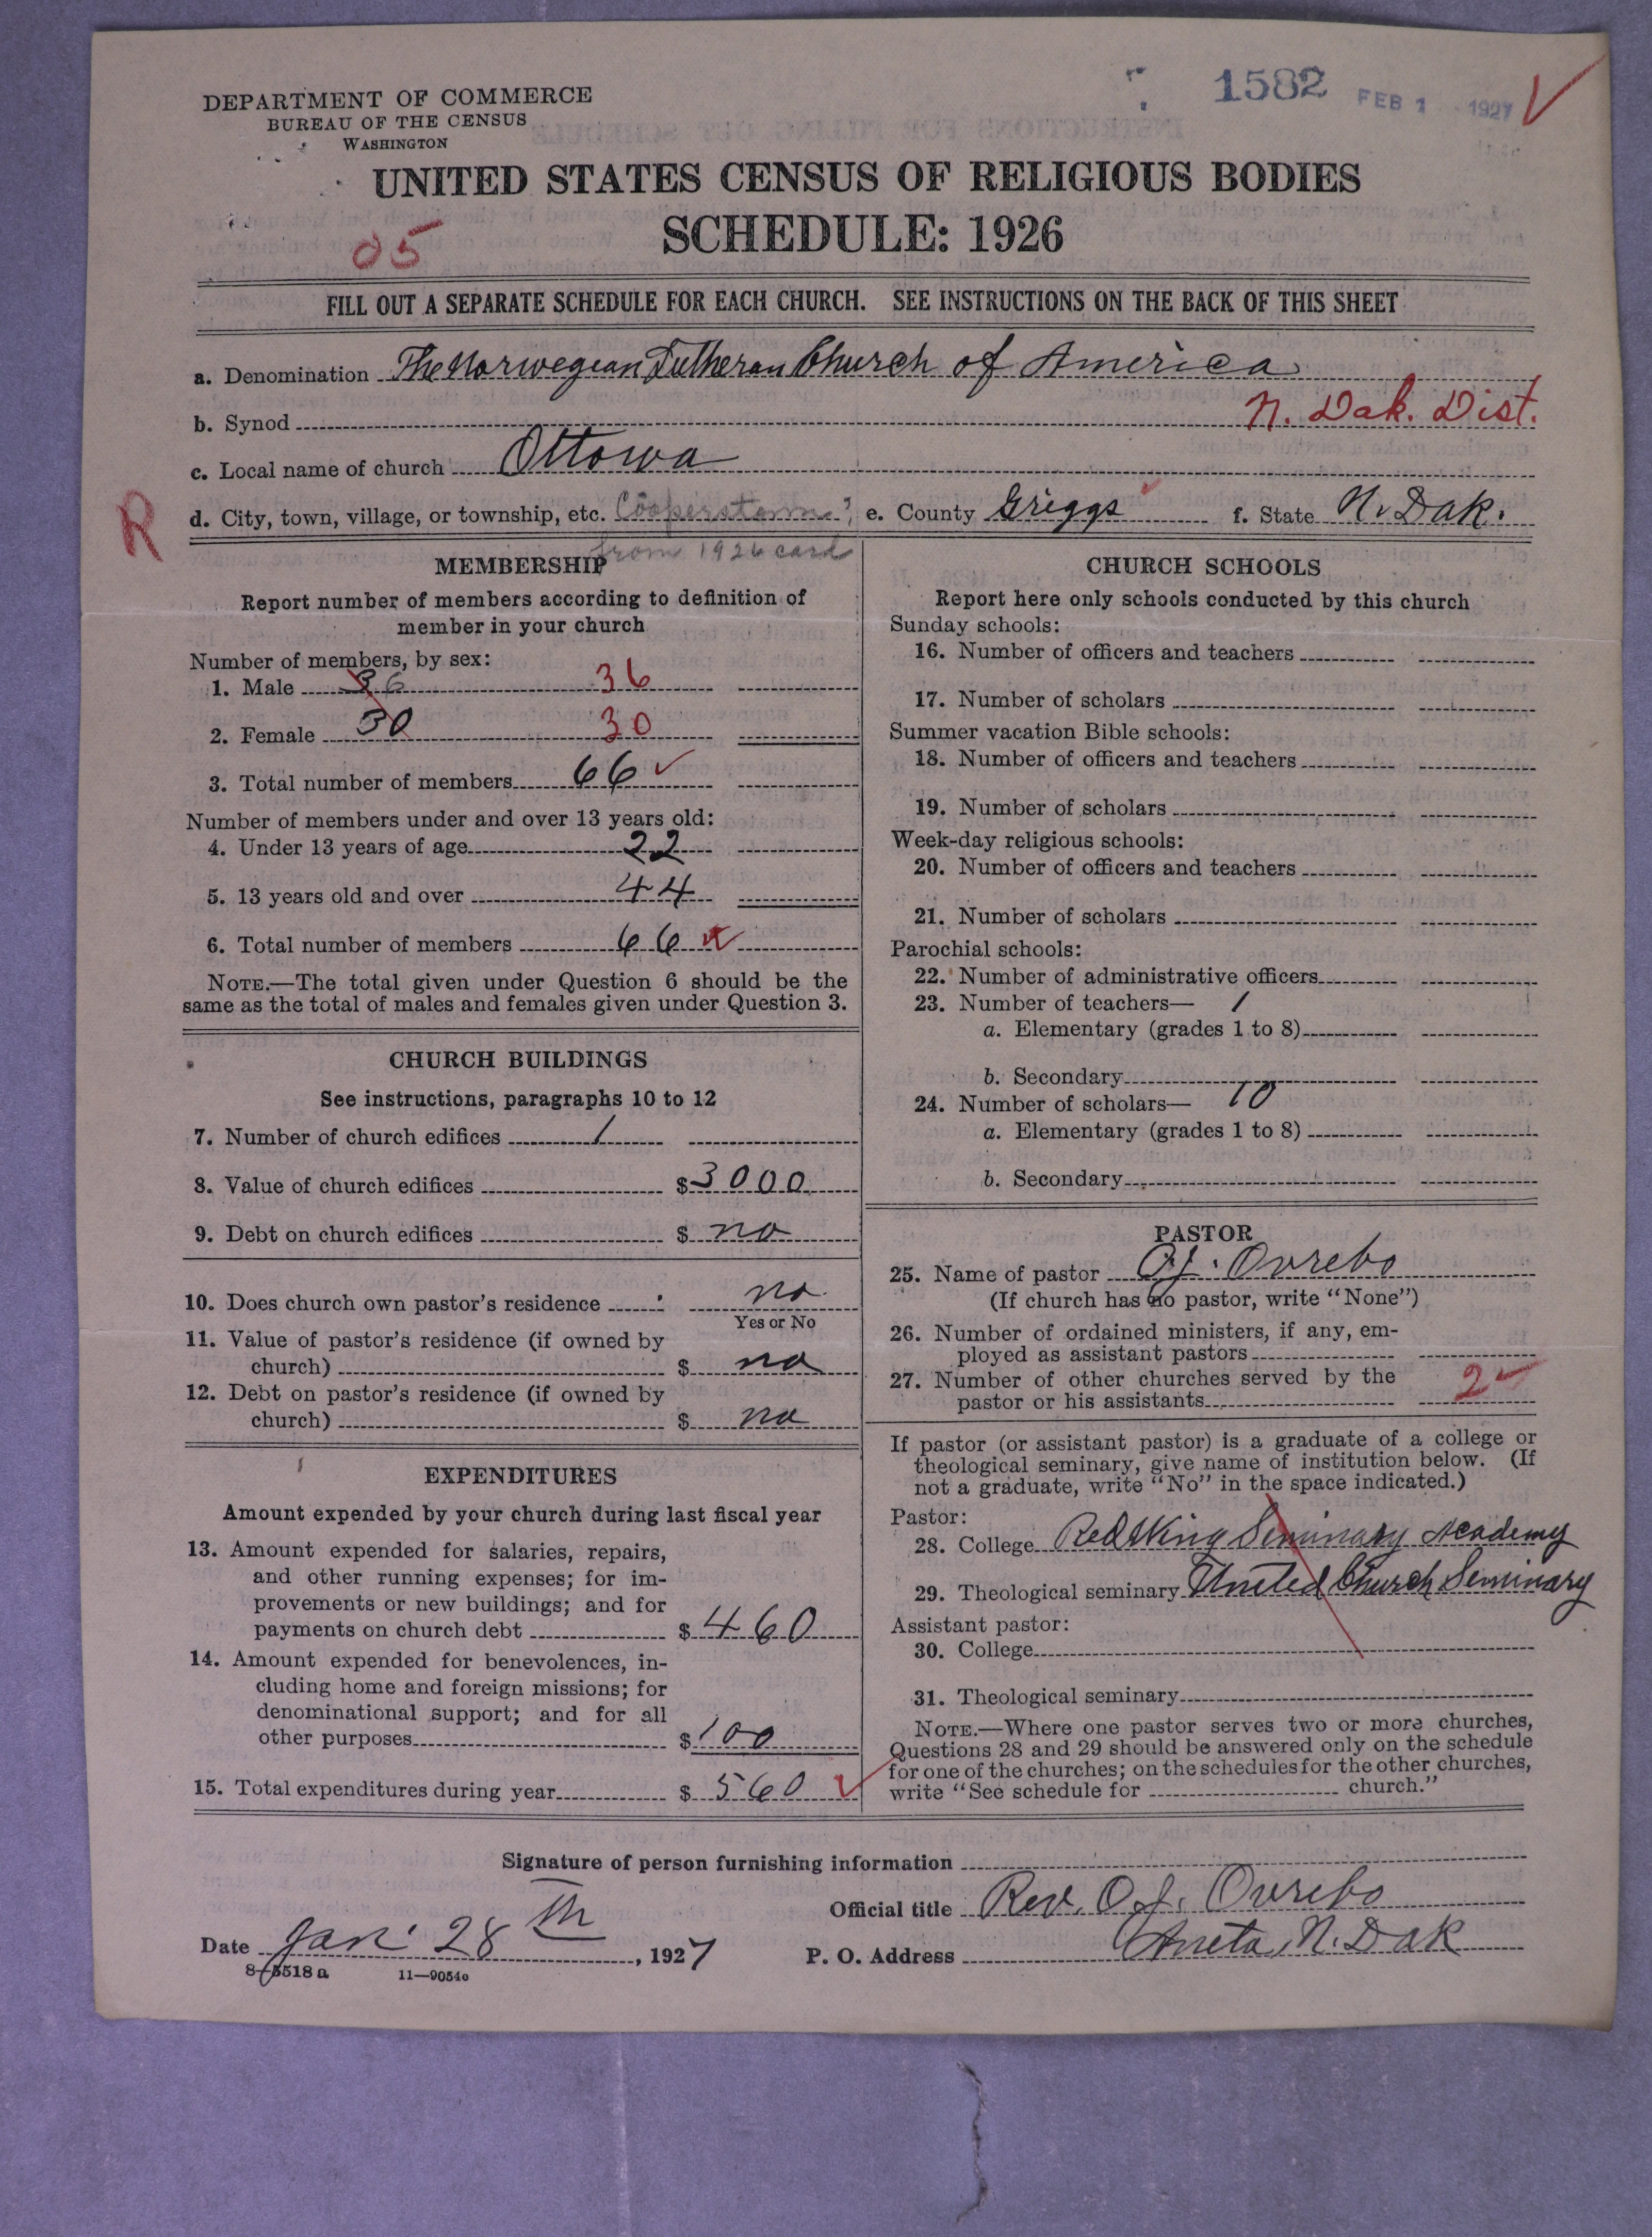 1582 FEB 1 1927
DEPARTMENT OF COMMERCE
BUREAU OF THE CENSUS
WASHINGTON
UNITED STATES CENSUS OF RELIGIOUS BODIES
SCHEDULE: 1926
05
FILL OUT A SEPARATE SCHEDULE FOR EACH CHURCH. SEE INSTRUCTIONS ON THE BACK OF THIS SHEET
a. Denomination The Norwegian Lutheran Church of America
b. Synod N. Dak. Dist.
c. Local name of church Ottowa
R d. City, town, village, or township, etc. Cooperstown?; e. County Griggs f. State N. Dak.
from 1926 card
MEMBERSHIP
Report number of members according to definition of
member in your church
Number of members, by sex:
1. Male 36 36
2. Female 30 30
3. Total number of members 66
Number of members under and over 13 years old:
4. Under 13 years of age 22
5. 13 years old and over 44
6. Total number of members 66
NOTE.—The total given under Question 6 should be the
same as the total of males and females given under Question 3.
CHURCH BUILDINGS
See instructions, paragraphs 10 to 12
7. Number of church edifices 1
8. Value of church edifices $3000
9. Debt on church edifices $ no
10. Does church own pastor's residence no
Yes or No
11. Value of pastor's residence (if owned by
church) $ no
12. Debt on pastor's residence (if owned by
church) $ no
EXPENDITURES
Amount expended by your church during last fiscal year
13. Amount expended for salaries, repairs,
and other running expenses; for im-
provements or new buildings; and for
payments on church debt $460
14. Amount expended for benevolences, in-
cluding home and foreign missions; for
denominational support; and for all
other purposes $100
15. Total expenditures during year $560
CHURCH SCHOOLS
Report here only schools conducted by this church
Sunday schools:
16. Number of officers and teachers
17. Number of scholars
Summer vacation Bible schools:
18. Number of officers and teachers
19. Number of scholars
Week-day religious schools:
20. Number of officers and teachers
21. Number of scholars
Parochial schools:
22. Number of administrative officers
23. Number of teachers— 1
a. Elementary (grades 1 to 8)
b. Secondary
24. Number of scholars— 10
a. Elementary (grades 1 to 8)
b. Secondary
PASTOR
25. Name of pastor O.J. Ovrebo
(If church has no pastor, write "None")
26. Number of ordained ministers, if any, em-
ployed as assistant pastors
27. Number of other churches served by the
pastor or his assistants 2
If pastor (or assistant pastor) is a graduate of a college or
theological seminary, give name of institution below. (If
not a graduate, write "No" in the space indicated.)
Pastor:
28. College Red Wing Seminary Academy
29. Theological seminary United Church Seminary
Assistant pastor:
30. College
31. Theological seminary
NOTE.—Where one pastor serves two or more churches,
Questions 28 and 29 should be answered only on the schedule
for one of the churches; on the schedules for the other churches,
write "See schedule for church."
Signature of person furnishing information
Official title Rev. O.J. Ovrebo
Date Jan 28th, 1927 P. O. Address Aneta, N. Dak
8-5518a 11—9054c